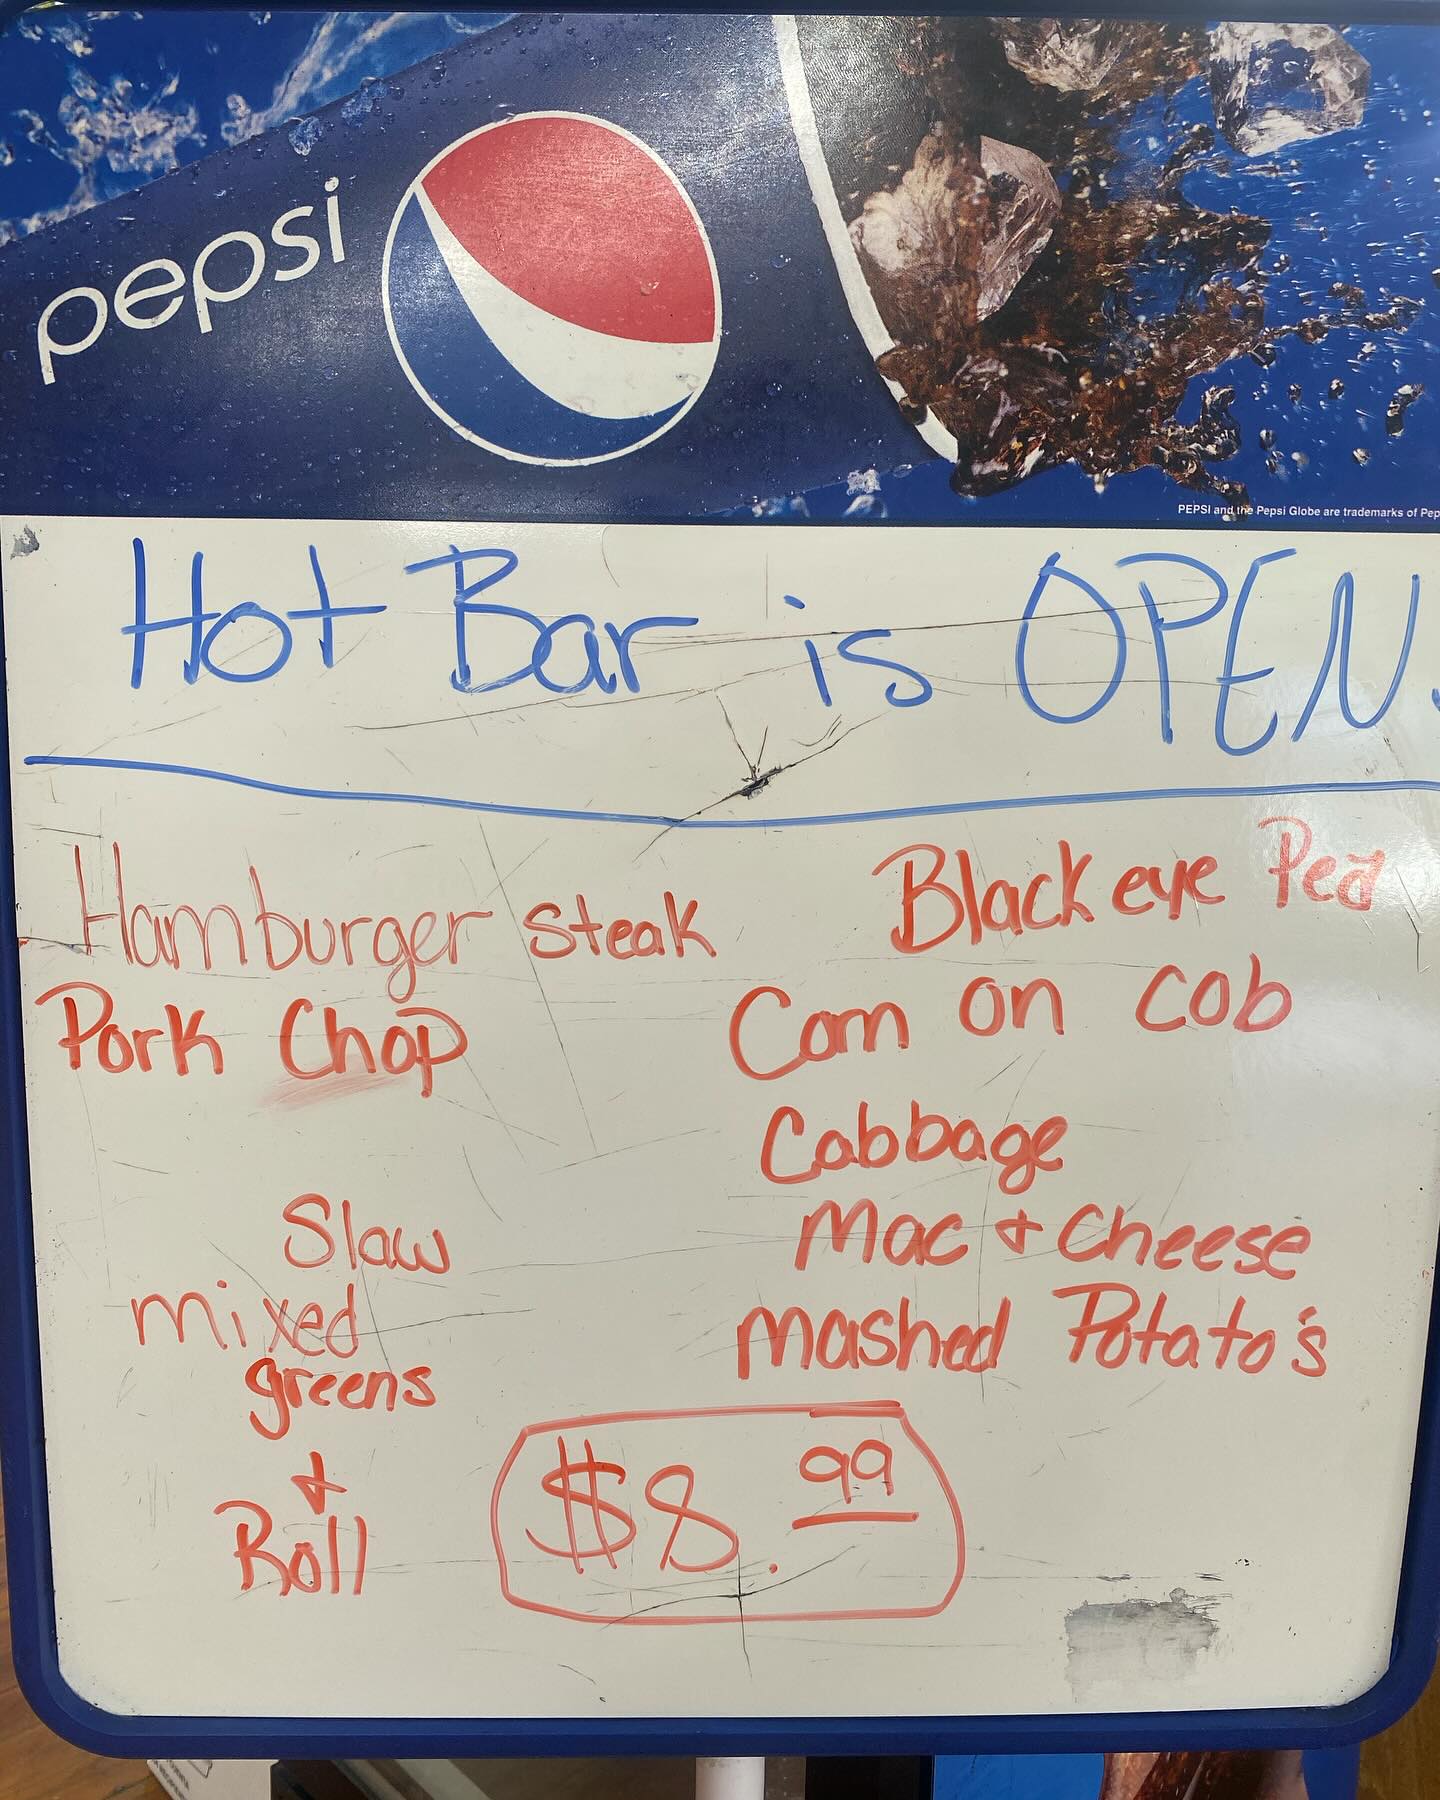 pepsi
PEPSI and the Pepsi Globe are trademarks of Pep
Hot Bar is OPEN.
Hamburger steak
Pork Chop
Slaw
mixed
greens
+
Roll
Black eye Pea
Corn on cob
Cabbage
Mac + Cheese
mashed Potato's
$8.99